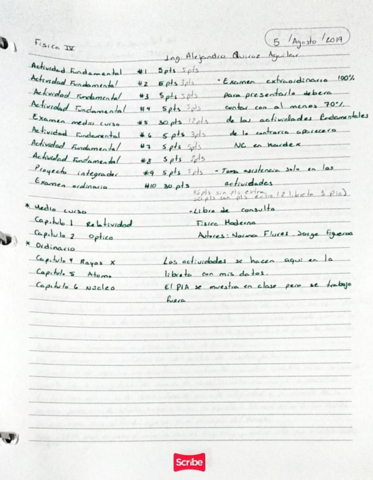 5 / Agosto / 2019
Física IV
Ing. Alejandro Quiroz Aguilar
Actividad Fundamental #1 5pts
Actividad Fundamental #2 5pts
Actividad Fundamental #3 5pts
Actividad Fundamental #4 5pts
Examen medio curso #5 30pts
Actividad Fundamental #6 5pts
Actividad Fundamental #7 5pts
Actividad Fundamental #8 5pts
Proyecto integrador #9 5pts
Examen ordinario #10 30pts
- Examen extraordinario 100%
para presentarlo debera
contar con al menos 70%
de las actividades Fundamentales
de lo contrario aparecera
NC en kardex
- Toma asistencia solo en las
actividades
* Medio curso
Capitulo 1 Relatividad
Capitulo 2 Optica
* Ordinario
Capitulo 4 Rayos X
Capitulo 5 Atomo
Capitulo 6 Núcleo
- Libro de consulta
Física Moderna
Autores: Norma Flores Jorge Figueroa
Las actividades se hacen aqui en la
libreta con mis datos.
El PIA se muestra en clase pero se trabaja
fuera
Scribe